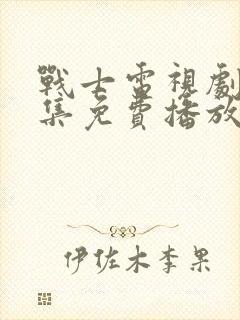 戰士電視劇
集免費播放
伊佐木李果